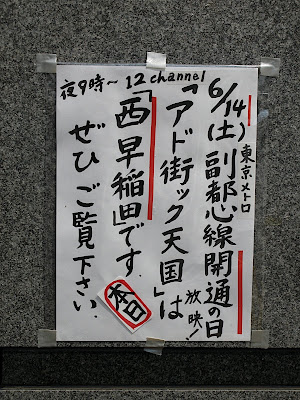 6/14(土)東京メトロ副都心線開通の日
放映!
「アド街ック天国」は
「西早稲田」です
ぜひご覧下さい.
夜9時〜12channel
本日